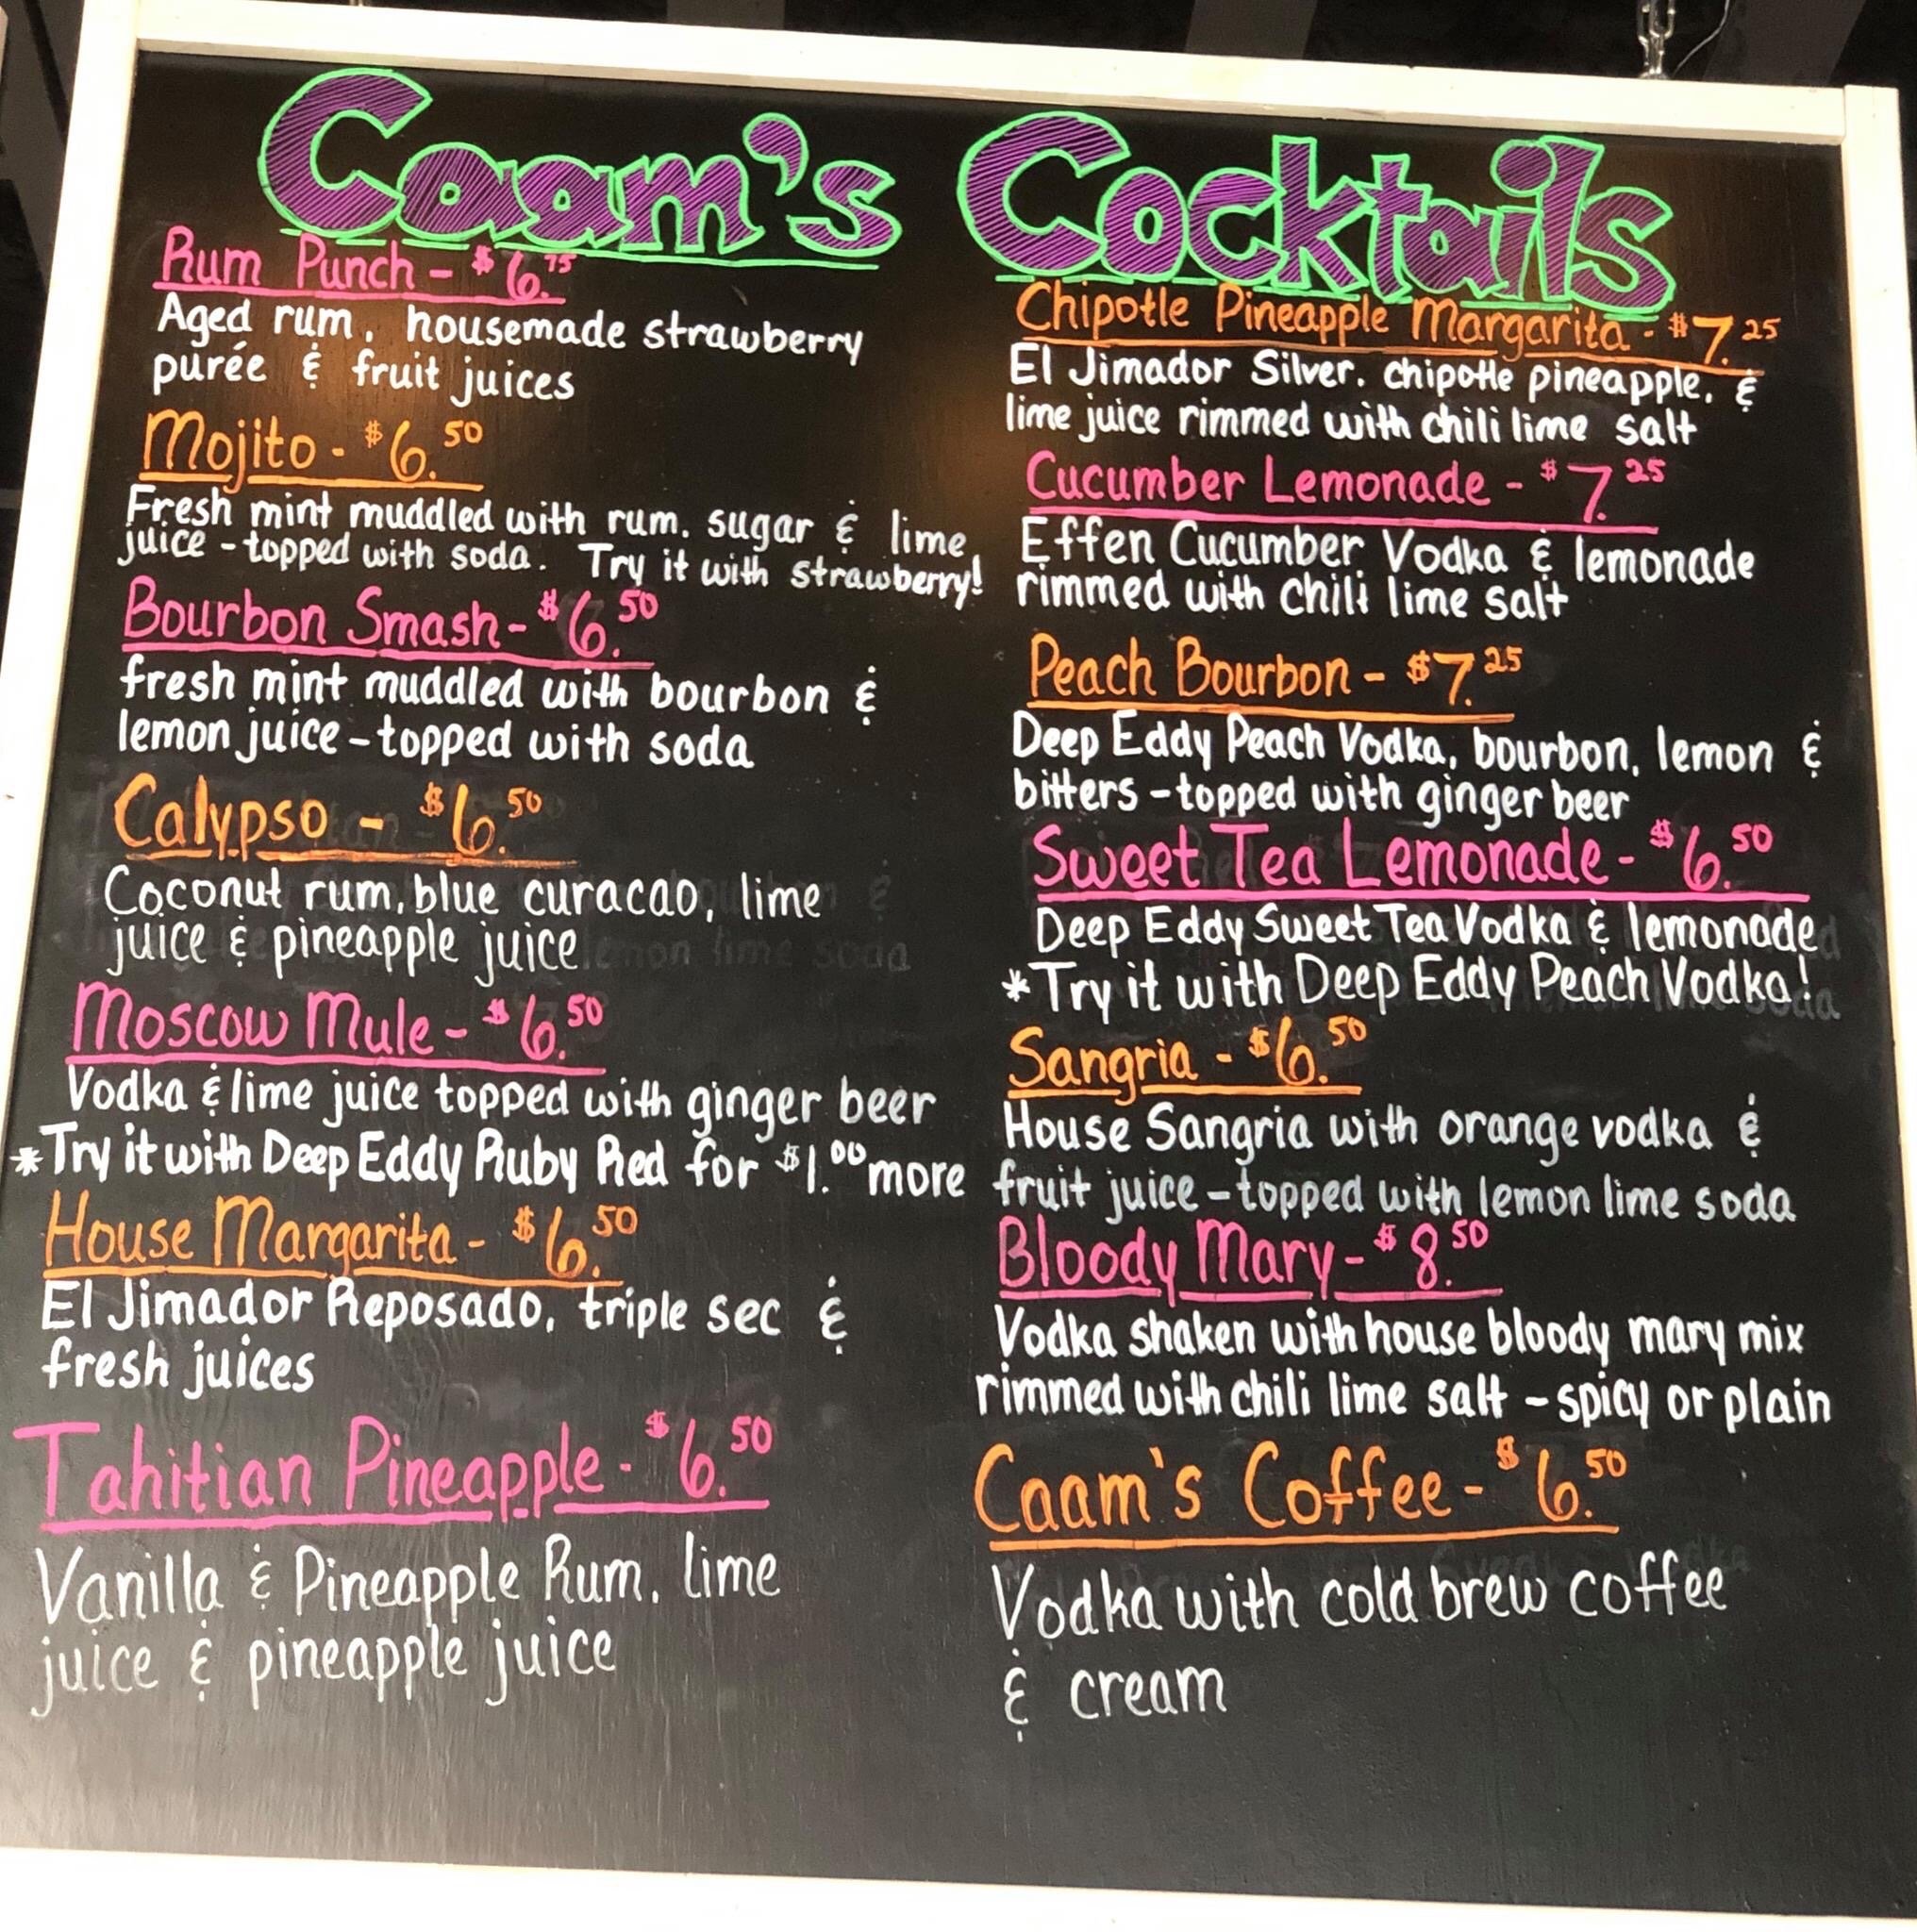 Caam's Cocktails
Rum Punch - $6.75
Aged rum, housemade strawberry
purée & fruit juices
Mojito - $6.50
Fresh mint muddled with rum, sugar & lime
juice - topped with soda. Try it with strawberry!
Bourbon Smash - $6.50
fresh mint muddled with bourbon &
lemon juice - topped with soda
Calypso - $6.50
Coconut rum, blue curacao, lime
juice & pineapple juice
Moscow Mule - $6.50
Vodka & lime juice topped with ginger beer
*Try it with Deep Eddy Ruby Red for $1.00 more
House Margarita - $6.50
El Jimador Reposado, triple sec &
fresh juices
Tahitian Pineapple - $6.50
Vanilla & Pineapple Rum, lime
juice & pineapple juice
Chipotle Pineapple Margarita - $7.25
El Jimador Silver, chipotle pineapple, &
lime juice rimmed with chili lime salt
Cucumber Lemonade - $7.25
Effen Cucumber Vodka & lemonade
rimmed with chili lime salt
Peach Bourbon - $7.25
Deep Eddy Peach Vodka, bourbon, lemon &
bitters - topped with ginger beer
Sweet Tea Lemonade - $6.50
Deep Eddy Sweet Tea Vodka & lemonade
*Try it with Deep Eddy Peach Vodka!
Sangria - $6.50
House Sangria with orange vodka &
fruit juice - topped with lemon lime soda
Bloody Mary - $8.50
Vodka shaken with house bloody mary mix
rimmed with chili lime salt - spicy or plain
Caam's Coffee - $6.50
Vodka with cold brew coffee
& cream